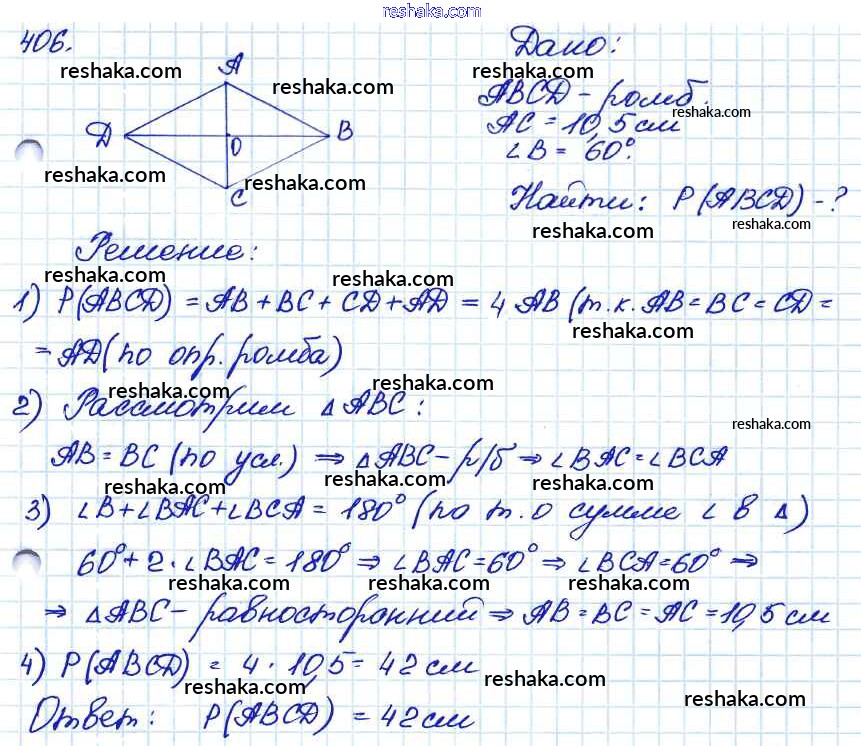 reshaka.com
406.
Дано:
reshaka.com
reshaka.com
A
reshaka.com
ABCD - ромб.
reshaka.com
AC = 10,5 см
D
O
B
∠B = 60°.
reshaka.com
reshaka.com
C
Найти: P(ABCD) - ?
reshaka.com
reshaka.com
Решение:
reshaka.com
1) P(ABCD) = AB + BC + CD + AD = 4 AB (т.к. AB = BC = CD =
reshaka.com
= AD (по опр. ромба)
reshaka.com
reshaka.com
2) Рассмотрим △ABC:
reshaka.com
AB = BC (по усл.) ⇒ △ABC - р/б ⇒ ∠BAC = ∠BCA
reshaka.com
reshaka.com
3) ∠B + ∠BAC + ∠BCA = 180° (по т. о сумме ∠ в △)
reshaka.com
60° + 2 · ∠BAC = 180° ⇒ ∠BAC = 60° ⇒ ∠BCA = 60° ⇒
reshaka.com
reshaka.com
reshaka.com
⇒ △ABC - равносторонний ⇒ AB = BC = AC = 10,5 см
reshaka.com
reshaka.com
4) P(ABCD) = 4 · 10,5 = 42 см
reshaka.com
reshaka.com
reshaka.com
Ответ: P(ABCD) = 42 см
reshaka.com